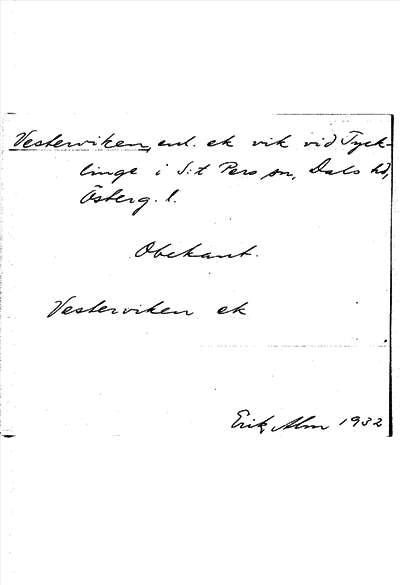 Vesterviken, enl. ek vik vid Tyck-
linge i S:t Pers sn, Dals hd,
Österg. l.
Obekant.
Vesterviken ek
Erik Alm 1932